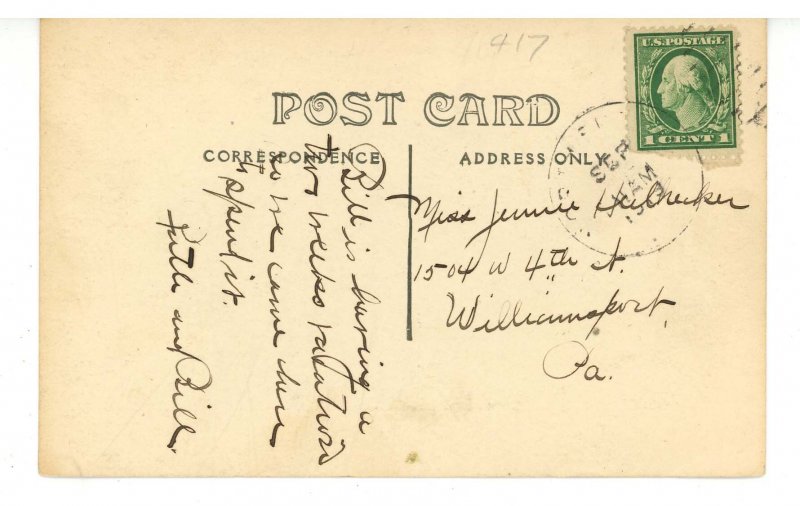 1917
U.S. POSTAGE
1 CENT 1
POST CARD
CORRESPONDENCE
ADDRESS ONLY
SEP
AM
Bill is having a
two weeks vacation
so we came here
to spend it.
Ruth and Bill.
Miss Jennie Heilnecker
1504 W 4th St.
Williamsport,
Pa.